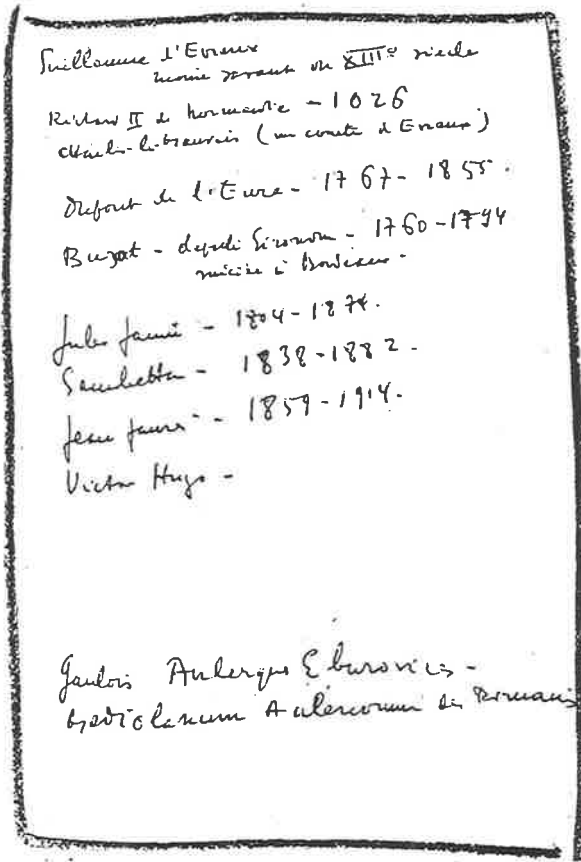 Guillaume d'Evreux
moine savant du XIIIe siècle
Richard II de Normandie - 1026
Charles-le-Mauvais (un comte d'Evreux)
Dupont de l'Eure - 1767 - 1855.
Buzot - député Girondin - 1760-1794
suicide à Bordeaux -
Jules Janin - 1804-1874.
Gambetta - 1838-1882.
Jean Jaurès - 1859-1914.
Victor Hugo -
Gaulois Aulerques Eburovices -
Mediolanum Aulercorum des Romains